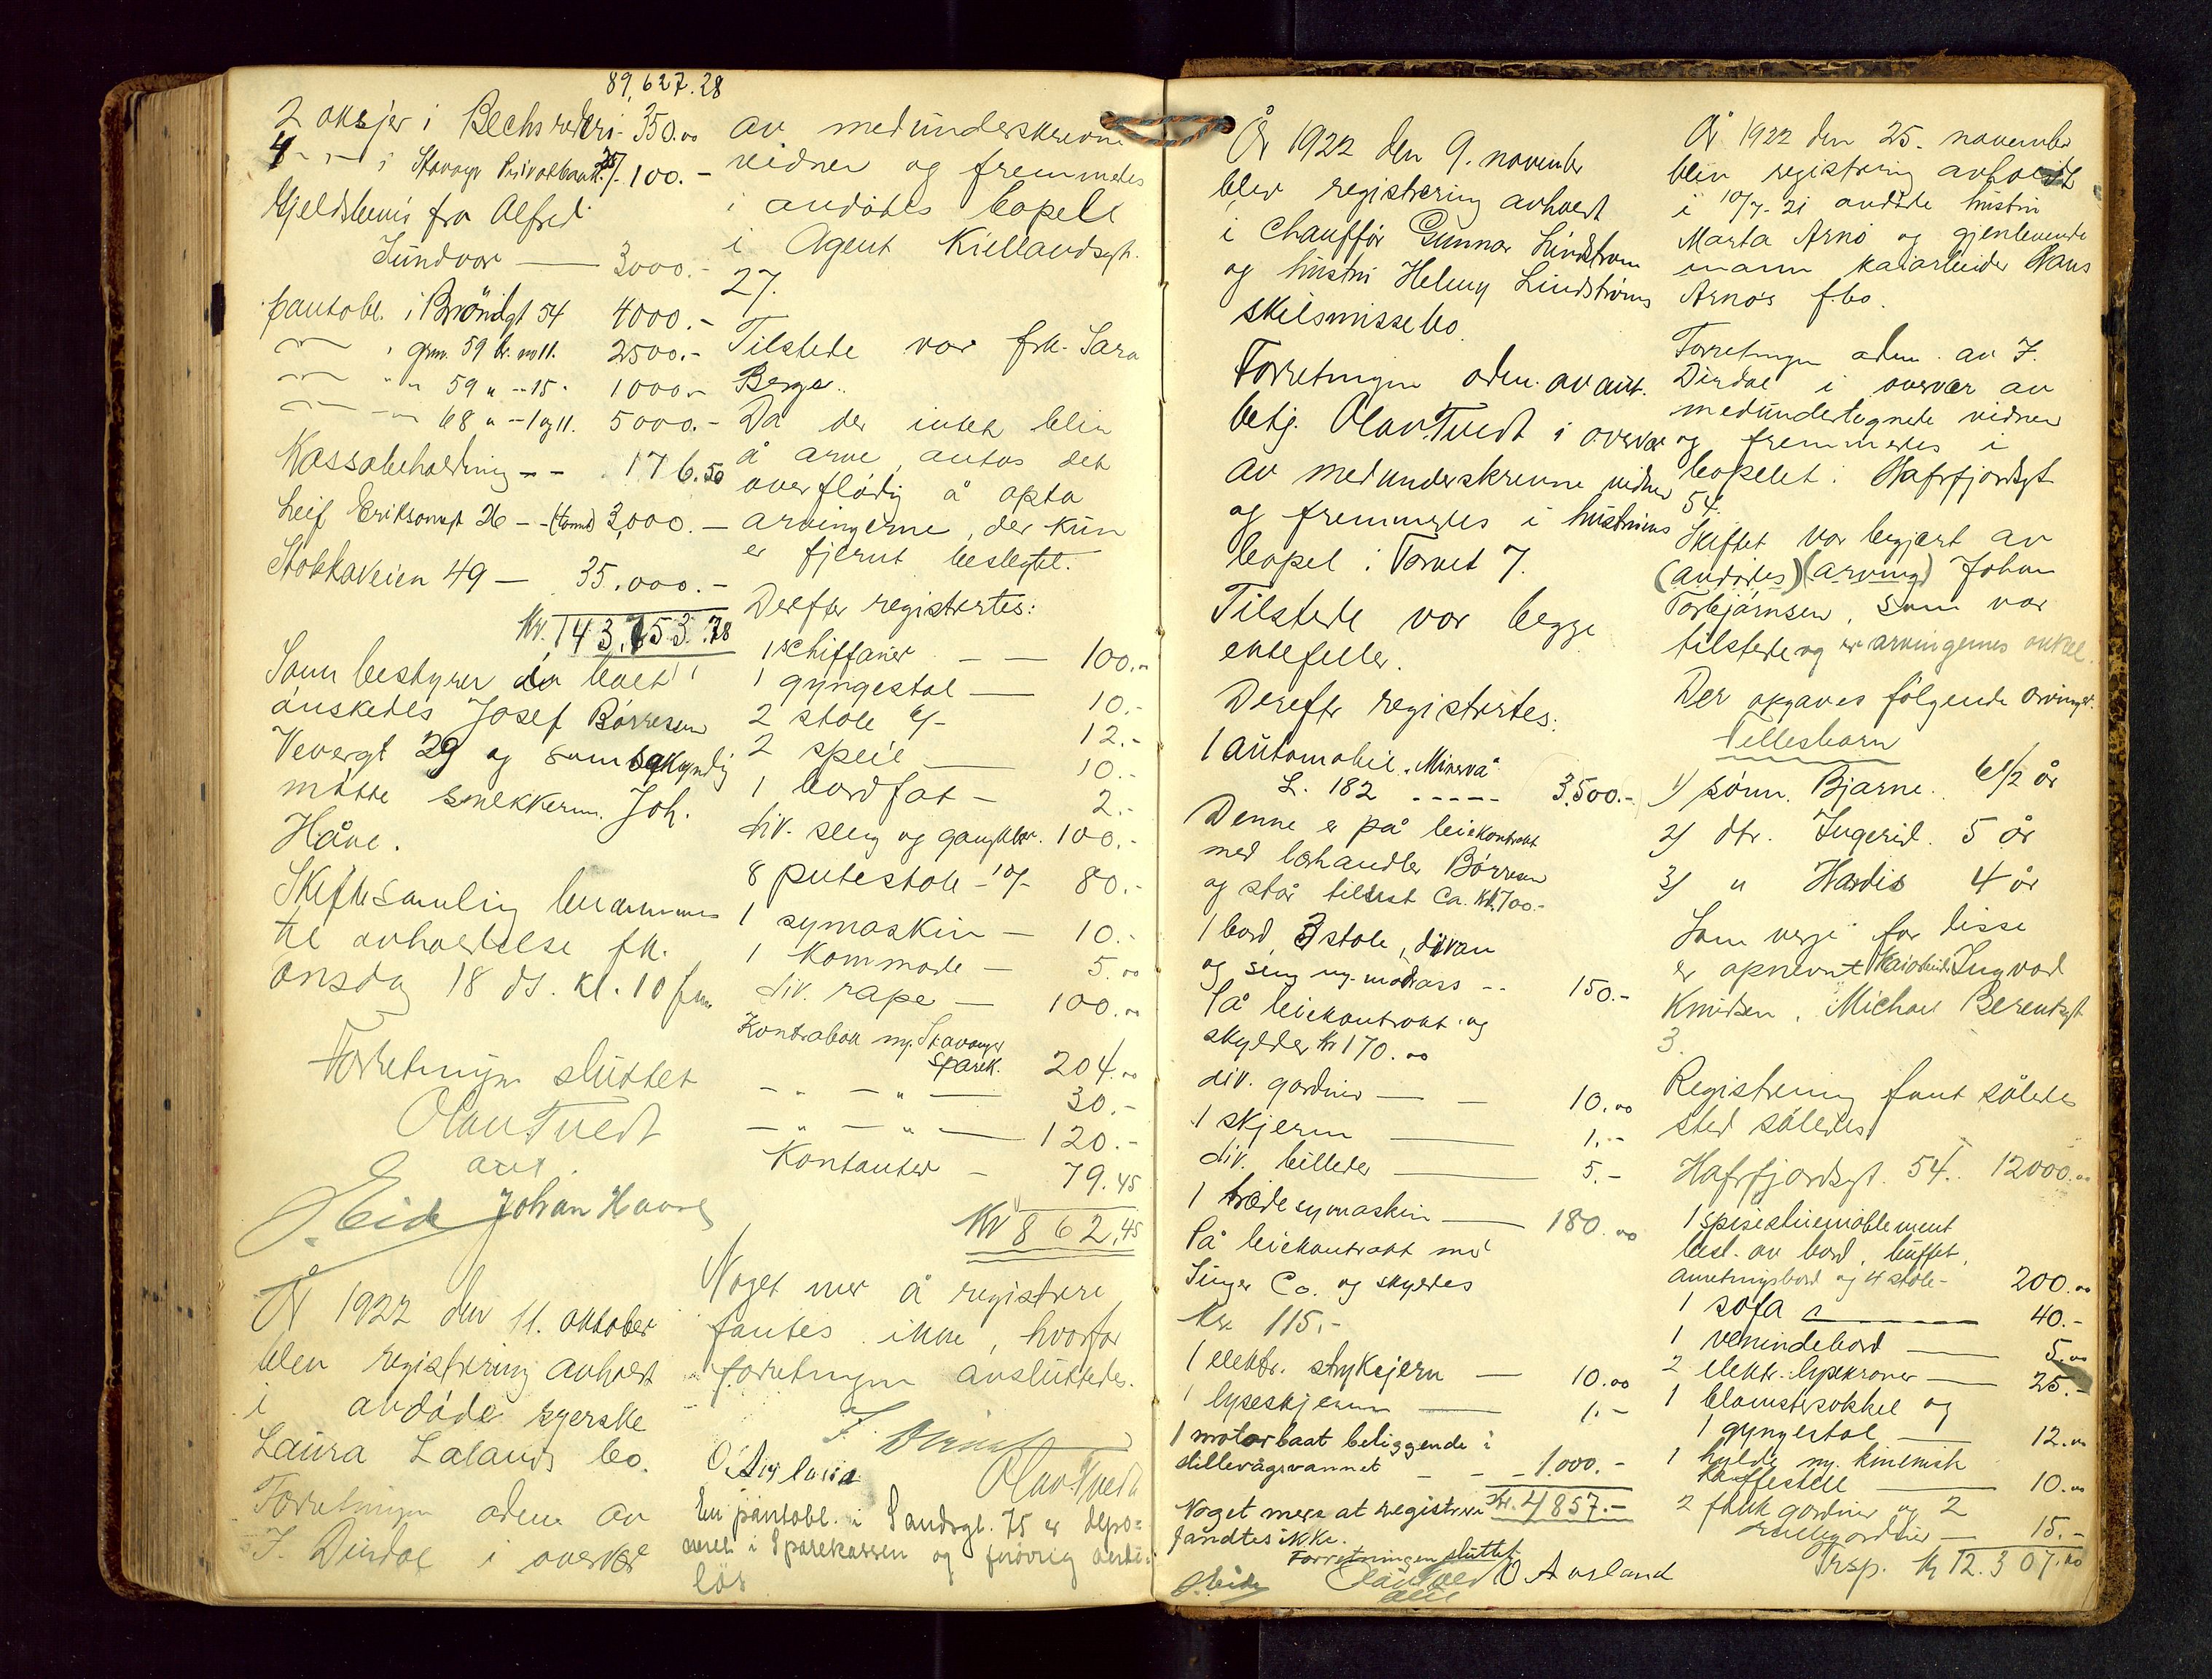 89,627.28
2 aksjer i Bechs rederi - 350.00
4 - " - i Stavangr Privatbank 25/- 100.-
Gjeldsbevis fra Alfred
Sundvor — 3000.-
pantobl. i Bröndgt 54 4000.-
— " — " grm. 59 br. no 11. 2500.-
— " — " " 59 " - " 15 " 1000.-
— " — " " 68 " - 1 og 11. 5000.-
Kassabeholdning - - 176.50
Leif Eriksonsgt 26 - - (tomt) 3,000.-
Stokkaveien 49 — 35.000.-
Kr. 143,753.78
Som bestyrer av boet
önskedes Josef Börresen
Vevergt 29 og som sakkyndig
mötte snekkerm. Joh.
Håve.
Skiftesamling berammes
til avholdelse fk.
onsdag 18 ds. kl. 10 fm.
Forretningen sluttet
Olav Tvedt
aut.
J. Eide Johan Haave
År 1922 den 11. oktober
blev registrering avholdt
i avdöde syerske
Laura Lalands bo.
Forretningen adm. av
J. Dirdal i overvær
av medunderskrevne
vidner og fremmedes
i avdödes bopæl
i Agent Kiellandsgt.
27.
Tilstede var frk. Sara
Berge.
Da der intet blir
å arve, antas det
overflödig å opta
arvingerne, der kun
er fjernt beslegtet.
Derefter registrertes:
1 schiffanier — — 100.-
1 gyngestol — 10.-
2 stole 6/- 12.-
2 speil — 10.-
1 bordfat - 2.-
div. seng og gangklær. 100.-
8 putestole - 10/- 80.-
1 symaskin - 10.-
1 kommode - 5.00
div. rape - 100.00
Kontrabok ny. Stavanger
Sparek. 204.00
- " - " — 30.-
- " - " — 120.-
Kontanter - 79.45
Kr 862,45
Noget mer å registrere
fantes ikke, hvorfor
forretningen avsluttedes.
J. Dirdal
O. Ausland Olav Tvedt
En pantobl. i Sandsgt. 75 er depo=
neret i Sparekassen og forövrig verdi=
lös
År 1922 den 9. november
blev registrering avholdt
i Chauffför Gunnar Lindström
og hustru Helmy Lindströms
skilsmissebo.
Forretningen adm. av aut.
betj. Olav Tvedt i overvær
av medunderskrevne vidner
og fremmedes i hustruens
bopel i Torvet 7.
Tilstede var begge
ektefeller.
Derefter registrertes:
1 automobil "Minerva"
L. 182 ----- 3,500.-
Denne er på leiekontrakt
med lærhandler Börresen
og står tilrest ca. kr. 700.-
1 bord, 3 stole, divan
og seng m. madrass -- 150.-
På leiekontrakt og
skylder kr 170.00
div. gardiner — - 10.00
1 skjerm — 1.-
div. billeder — 5.-
1 trædesymaskin — 180.00
På leiekontrakt med
Singer Co. og skyldes
kr. 115.-
1 elektr. strykejern — 10.00
1 lyseskjerm — 1.-
1 motorbaat beliggende i
stillevågsvannet - - - 1.000.-
Noget mere at registrere kr. 4857.-
fandtes ikke.
Forretningen sluttet
J. Eide Olav Tvedt O Ausland
aut
År 1922 den 25. november
blev registrering avholdt
i 10/7-21 avdöde hustru
Marta Arnö og gjenlevende
mann kaiarbeider Hans
Arnös f.bo.
Forretningen adm. av J.
Dirdal i overvær av
medundertegnede vidner
og fremmedes i
bopelet: Hafrsfjordsgt
54.
Skiftet var begjært av
(avdödes) (arving) Johan
Torbjörnsen, som var
tilstede og er arvingernes onkel.
Der opgaves fölgende arvinger:
Fellesbarn
1) sönn. Bjarne. 6 1/2 år
2) dtr. Ingerid. 5 år
3) " Hardis 4 år
Som verje for disse
er opnevnt kaiarbeider Ingvald
Knudsen, Michael Berentsgt
3.
Registrering fant således
sted således
Hafrsfjordsgt. 54. 12000.00
1 spisestuemöblement
best. av bord, buffet,
anretningsbord og 4 stole - 200.00
1 sofa — 40.-
1 venindebord — 5.00
2 elektr. lysekroner — 25.-
1 blomstersokkel og
1 gyngestol — 12.00
1 hylde m. kinesisk
kaffestell — 10.00
2 fluk gardiner og 2
rullegardiner — 15.-
Trsp. kr 12.307.00